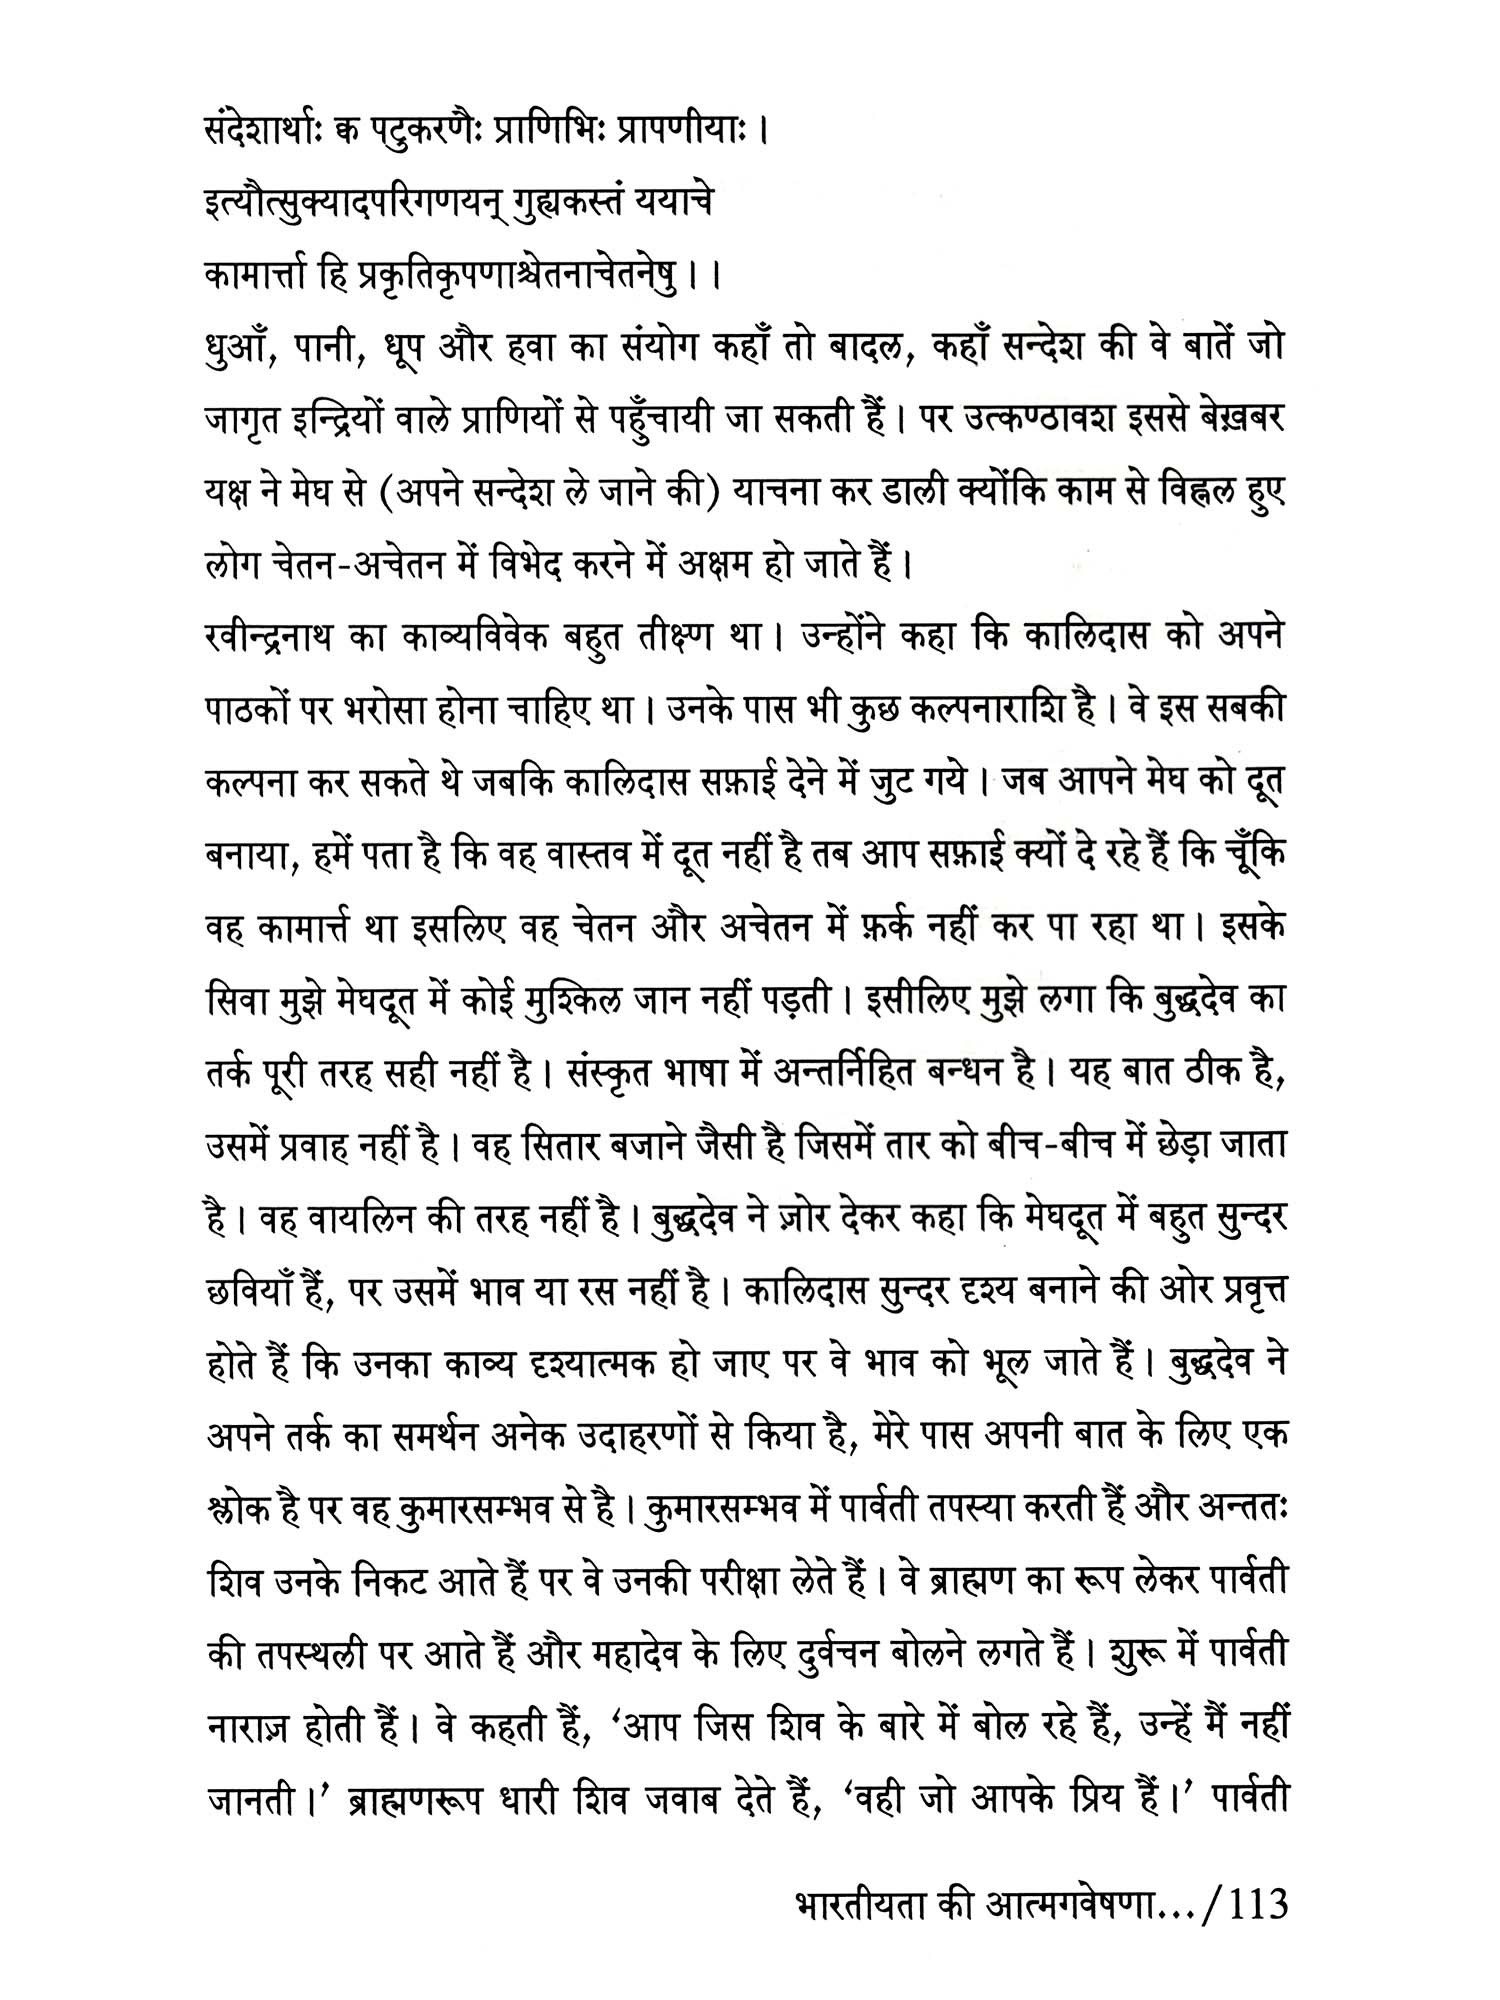 संदेशार्थाः क्व पटुकरणैः प्राणिभिः प्रापणीयाः।
इत्यौत्सुक्यादपरिगणयन् गुह्यकस्तं ययाचे
कामार्त्ता हि प्रकृतिकृपणाश्चेतनाचेतनेषु।।
धुआँ, पानी, धूप और हवा का संयोग कहाँ तो बादल, कहाँ सन्देश की वे बातें जो
जागृत इन्द्रियों वाले प्राणियों से पहुँचायी जा सकती हैं। पर उत्कण्ठावश इससे बेख़बर
यक्ष ने मेघ से (अपने सन्देश ले जाने की) याचना कर डाली क्योंकि काम से विह्वल हुए
लोग चेतन-अचेतन में विभेद करने में अक्षम हो जाते हैं।
रवीन्द्रनाथ का काव्यविवेक बहुत तीक्ष्ण था। उन्होंने कहा कि कालिदास को अपने
पाठकों पर भरोसा होना चाहिए था। उनके पास भी कुछ कल्पनाराशि है। वे इस सबकी
कल्पना कर सकते थे जबकि कालिदास सफ़ाई देने में जुट गये। जब आपने मेघ को दूत
बनाया, हमें पता है कि वह वास्तव में दूत नहीं है तब आप सफ़ाई क्यों दे रहे हैं कि चूँकि
वह कामार्त्त था इसलिए वह चेतन और अचेतन में फ़र्क नहीं कर पा रहा था। इसके
सिवा मुझे मेघदूत में कोई मुश्किल जान नहीं पड़ती। इसीलिए मुझे लगा कि बुद्धदेव का
तर्क पूरी तरह सही नहीं है। संस्कृत भाषा में अन्तर्निहित बन्धन है। यह बात ठीक है,
उसमें प्रवाह नहीं है। वह सितार बजाने जैसी है जिसमें तार को बीच-बीच में छेड़ा जाता
है। वह वायलिन की तरह नहीं है। बुद्धदेव ने ज़ोर देकर कहा कि मेघदूत में बहुत सुन्दर
छवियाँ हैं, पर उसमें भाव या रस नहीं है। कालिदास सुन्दर दृश्य बनाने की ओर प्रवृत्त
होते हैं कि उनका काव्य दृश्यात्मक हो जाए पर वे भाव को भूल जाते हैं। बुद्धदेव ने
अपने तर्क का समर्थन अनेक उदाहरणों से किया है, मेरे पास अपनी बात के लिए एक
श्लोक है पर वह कुमारसम्भव से है। कुमारसम्भव में पार्वती तपस्या करती हैं और अन्ततः
शिव उनके निकट आते हैं पर वे उनकी परीक्षा लेते हैं। वे ब्राह्मण का रूप लेकर पार्वती
की तपस्थली पर आते हैं और महादेव के लिए दुर्वचन बोलने लगते हैं। शुरू में पार्वती
नाराज़ होती हैं। वे कहती हैं, ‘आप जिस शिव के बारे में बोल रहे हैं, उन्हें मैं नहीं
जानती।’ ब्राह्मणरूप धारी शिव जवाब देते हैं, ‘वही जो आपके प्रिय हैं।’ पार्वती
भारतीयता की आत्मगवेषणा.../113